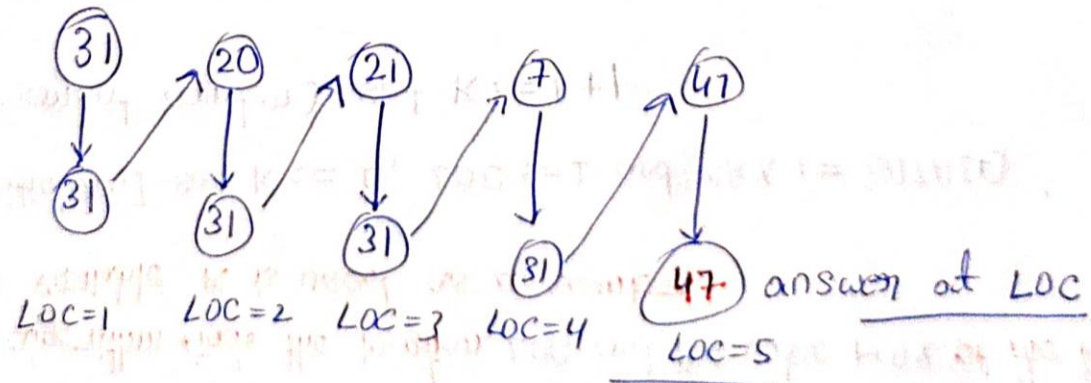 31 20 21 7 47
31 31 31 31 47 answer at LOC
LOC=1 LOC=2 LOC=3 LOC=4 LOC=5